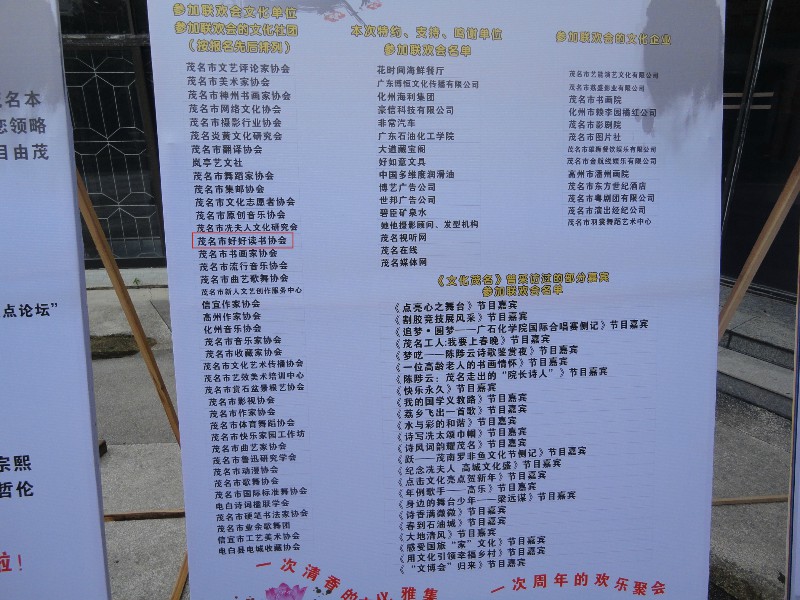 茂名本
您领略
目由茂
点论坛"
宗熙
哲伦
啦！
参加联欢会文化单位
参加联欢会的文化社团
（按报名先后排列）
茂名市文艺评论家协会
茂名市美术家协会
茂名市神州书画家协会
茂名市网络文化协会
茂名市摄影行业协会
茂名炎黄文化研究会
茂名市翻译协会
岚亭艺文社
茂名市舞蹈家协会
茂名市集邮协会
茂名市文化志愿者协会
茂名市原创音乐协会
茂名市冼夫人文化研究会
茂名市好好读书协会
茂名市书画家协会
茂名市流行音乐协会
茂名市曲艺歌舞协会
茂名市新人文艺创作服务中心
信宜作家协会
高州作家协会
化州音乐协会
茂名市音乐家协会
茂名市收藏家协会
茂名市文化艺术传播协会
茂名市艺效美术培训中心
茂名市赏石盆景根艺协会
茂名市影视协会
茂名市作家协会
茂名市体育舞蹈协会
茂名市快乐家园工作坊
茂名市曲艺家协会
茂名市鲁迅研究学会
茂名市动漫协会
茂名市歌舞协会
茂名市国际标准舞协会
电白诗词楹联学会
茂名市硬笔书法家协会
茂名市业余歌舞团
信宜市工艺美术协会
电白县电城收藏协会
本次特约、支持、鸣谢单位
参加联欢会名单
花时间海鲜餐厅
广东博恒文化传播有限公司
化州海利集团
豪信科技有限公司
非常汽车
广东石油化工学院
大道藏宝阁
好如意文具
中国多维度润滑油
博艺广告公司
世邦广告公司
碧臣矿泉水
她他摄影顾问、发型机构
茂名视听网
茂名在线
茂名媒体网
参加联欢会的文化企业
茂名市艺能演艺文化有限公司
茂名市荔盛影业有限公司
茂名市书画院
化州市赖李园橘红公司
茂名市影剧院
茂名市图片社
茂名市雄舞餐饮娱乐有限公司
茂名市金航线娱乐有限公司
高州市潘州画院
茂名市东方世纪酒店
茂名市粤剧团有限公司
茂名市演出经纪公司
茂名市羽裳舞蹈艺术中心
《文化茂名》曾采访过的部分嘉宾
参加联欢会名单
《点亮心之舞台》节目嘉宾
《割胶竞技展风采》节目嘉宾
《追梦·圆梦——广石化学院国际合唱赛侧记》节目嘉宾
《茂名工人:我要上春晚》节目嘉宾
《梦呓——陈陟云诗歌鉴赏夜》节目嘉宾
《一位高龄老人的书画情怀》节目嘉宾
《陈陟云：茂名走出的"院长诗人"》节目嘉宾
《快乐永久》节目嘉宾
《我的国学义教路》节目嘉宾
《荔乡飞出一首歌》节目嘉宾
《水与彩的和谐》节目嘉宾
《诗写冼太颂巾帼》节目嘉宾
《诗风词韵耀茂名》节目嘉宾
《跃——茂南罗非鱼文化节侧记》节目嘉宾
《纪念冼夫人 高城文化盛》节目嘉宾
《点击文化亮点贺新年》节目嘉宾
《年例歌手——高乐》节目嘉宾
《身边的舞台少年——梁远谋》节目嘉宾
《诗香满薇薇》节目嘉宾
《春到石油城》节目嘉宾
《大地清风》节目嘉宾
《感爱国旅"家"文化》节目嘉宾
《用文化引领幸福乡村》节目嘉宾
《"文博会"归来》节目嘉宾
一次清香的文化雅集
一次周年的欢乐聚会